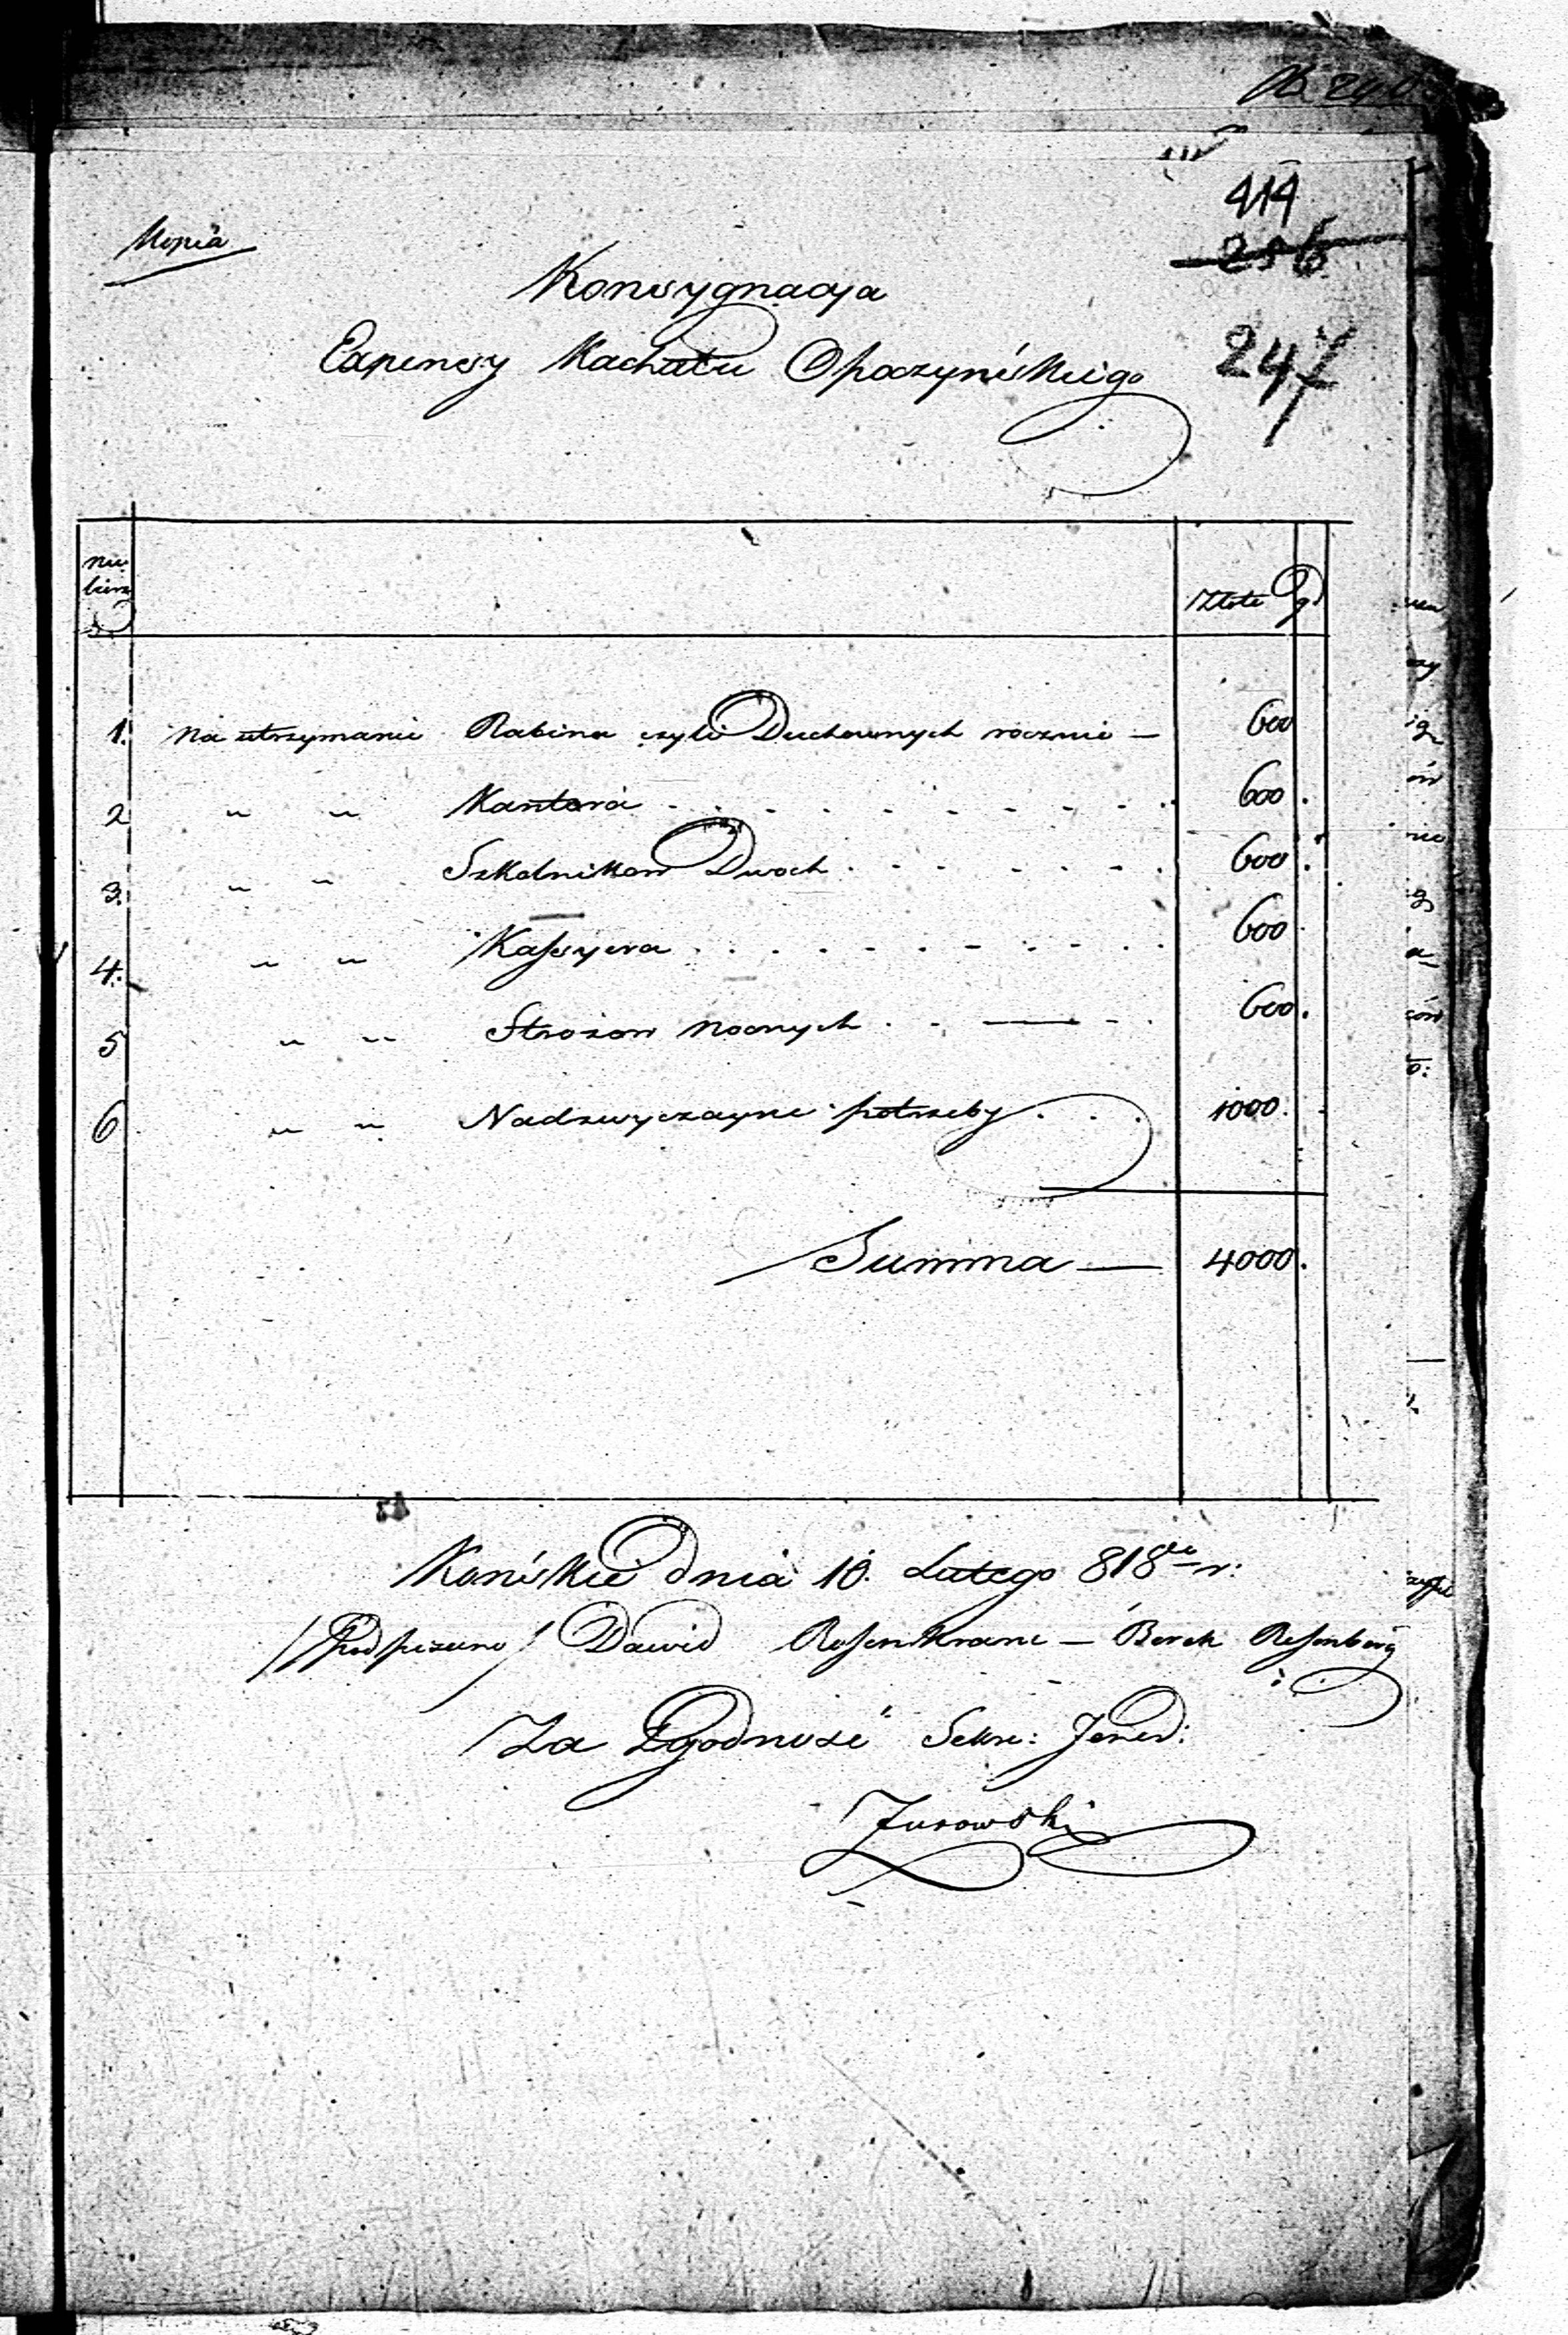 414
256
247
Kopia
Konsygnacja
Expensy Kachału Opoczyńskiego
Nu-
bierz Złote gr
1. Na utrzymanie Rabina czyli Duchownych rocznie — 600
2 " " Kantora . . . . . . . . . 600 .
3. " " Szkolnikow Dwoch . . . . . . 600 .
4. " " Kassyera . . . . . . . . . 600 .
5 " " Strożow Nocnych . . — . . 600 .
6 " " Nadzwyczayne potrzeby . . . 1000 .
Summa — 4000 .
Końskie Dnia 10. Lutego 818go r:
/Podpisano/ Dawid Rosenkranc — Berek Rosenberg
Za Zgodność Sekre: Jener:
Żurowski